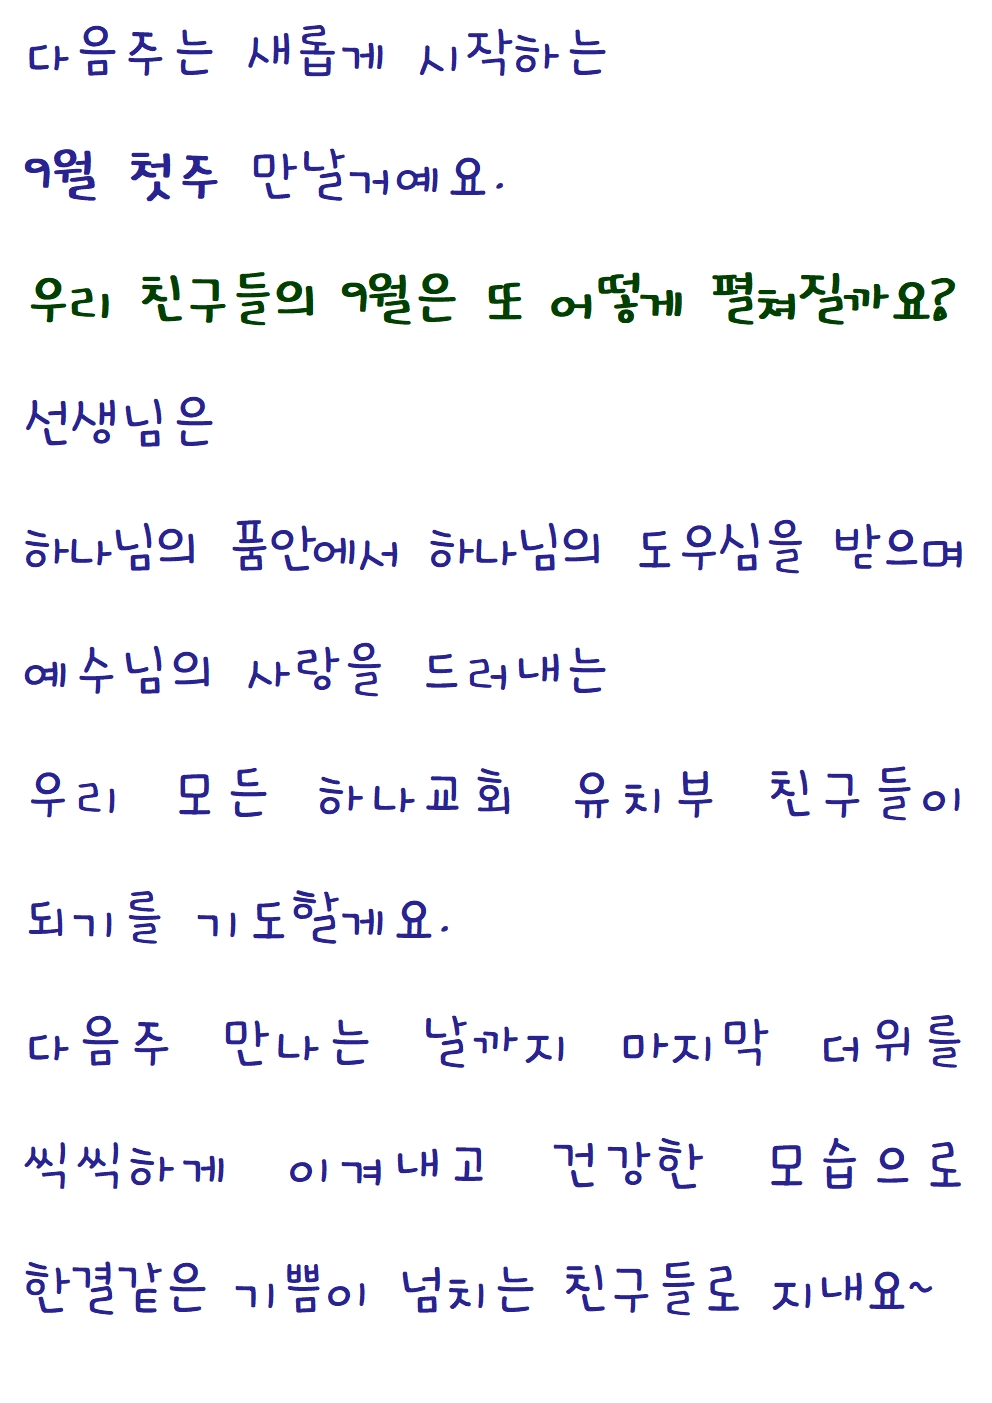 다음주는 새롭게 시작하는
9월 첫주 만날거예요.
우리 친구들의 9월은 또 어떻게 펼쳐질까요?
선생님은
하나님의 품안에서 하나님의 도우심을 받으며
예수님의 사랑을 드러내는
우리 모든 하나교회 유치부 친구들이
되기를 기도할게요.
다음주 만나는 날까지 마지막 더위를
씩씩하게 이겨내고 건강한 모습으로
한결같은 기쁨이 넘치는 친구들로 지내요~